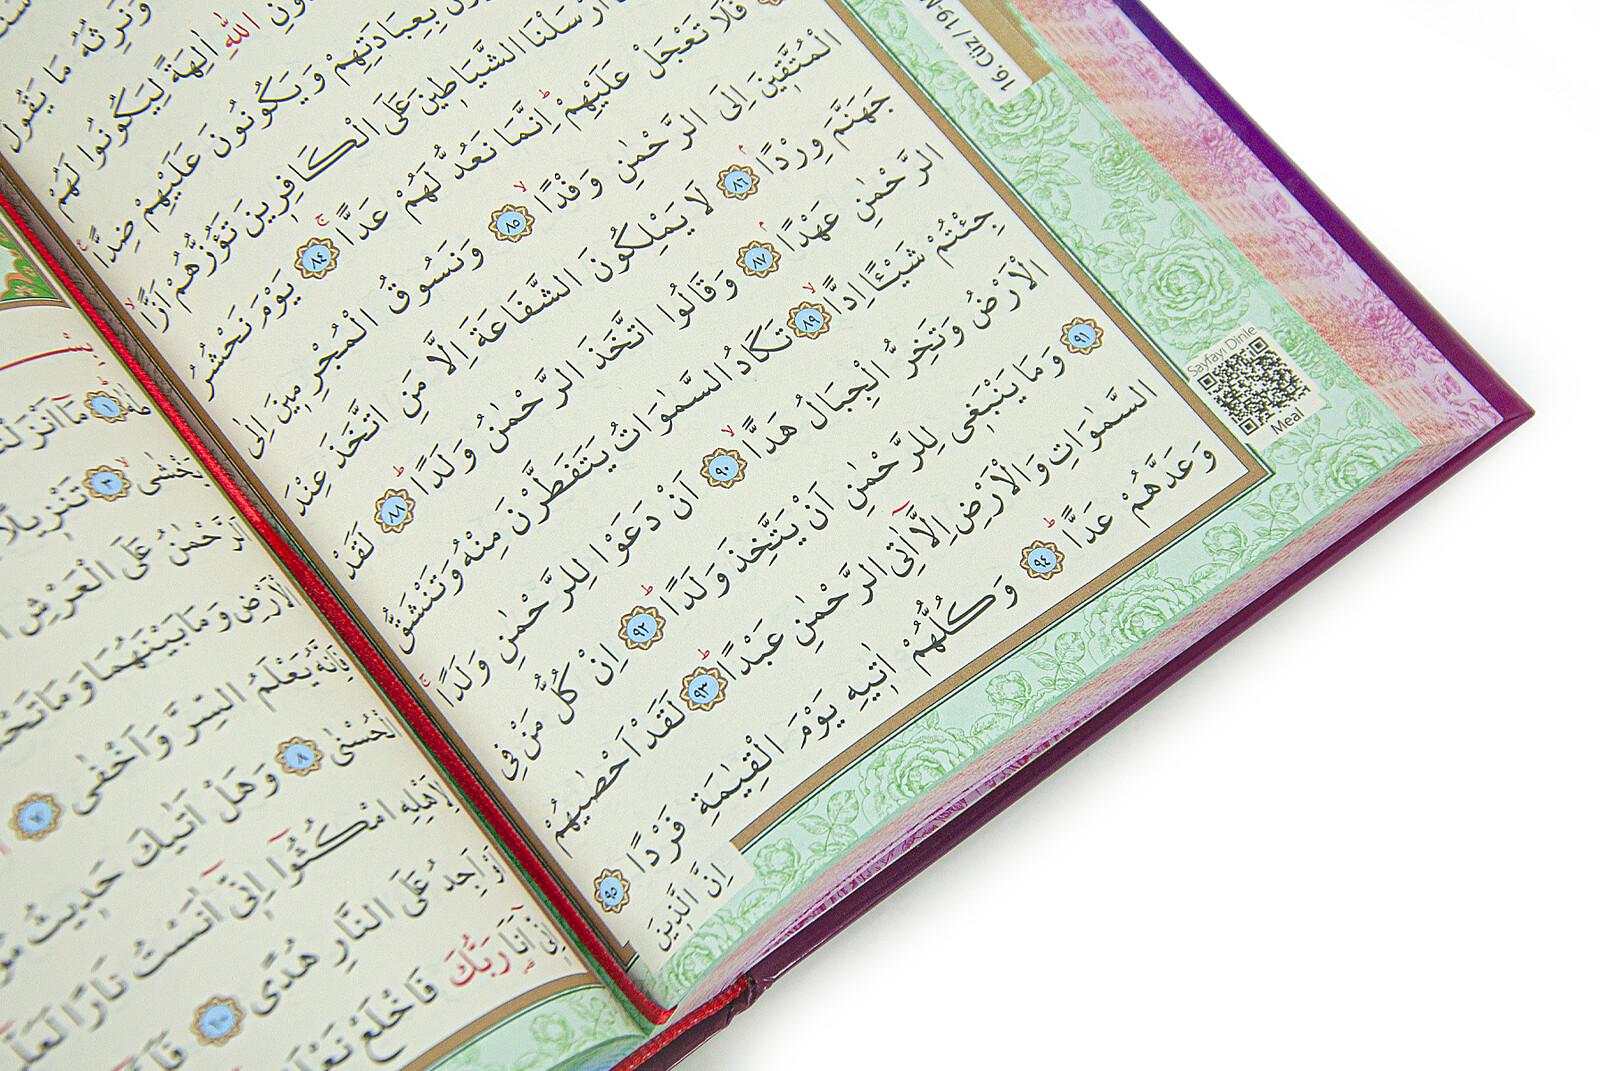 16. Cüz / 19-M
وَنَرِثُهُ مَا يَقُولُ
اللّٰهِ اٰلِهَةً لِيَكُونُوا لَهُمْ
بِعِبَادَتِهِمْ وَيَكُونُونَ عَلَيْهِمْ ضِدًّا
اَرْسَلْنَا الشَّيَاطٖينَ عَلَى الْكَافِرٖينَ تَؤُزُّهُمْ اَزًّا
فَلَا تَعْجَلْ عَلَيْهِمْ اِنَّمَا نَعُدُّ لَهُمْ عَدًّا ٨٤ يَوْمَ نَحْشُرُ
الْمُتَّقٖينَ اِلَى الرَّحْمٰنِ وَفْدًا ٨٥ وَنَسُوقُ الْمُجْرِمٖينَ اِلٰى
جَهَنَّمَ وِرْدًا ٨٦ لَا يَمْلِكُونَ الشَّفَاعَةَ اِلَّا مَنِ اتَّخَذَ عِنْدَ
الرَّحْمٰنِ عَهْدًا ٨٧ وَقَالُوا اتَّخَذَ الرَّحْمٰنُ وَلَدًا ٨٨ لَقَدْ
جِئْتُمْ شَيْـًٔا اِدًّا ٨٩ تَكَادُ السَّمٰوَاتُ يَتَفَطَّرْنَ مِنْهُ وَتَنْشَقُّ
الْاَرْضُ وَتَخِرُّ الْجِبَالُ هَدًّا ٩٠ اَنْ دَعَوْا لِلرَّحْمٰنِ وَلَدًا
٩١ وَمَا يَنْبَغٖى لِلرَّحْمٰنِ اَنْ يَتَّخِذَ وَلَدًا ٩٢ اِنْ كُلُّ مَنْ فِى
السَّمٰوَاتِ وَالْاَرْضِ اِلَّٓا اٰتِى الرَّحْمٰنِ عَبْدًا ٩٣ لَقَدْ اَحْصٰيهُمْ
وَعَدَّهُمْ عَدًّا ٩٤ وَكُلُّهُمْ اٰتٖيهِ يَوْمَ الْقِيٰمَةِ فَرْدًا ٩٥
اِنَّ الَّذٖينَ
Sayfayı Dinle
Meal
طٰهٰ ١ مَٓا اَنْزَلْنَا
يَخْشٰى ٣ تَنْزٖيلًا
اَلرَّحْمٰنُ عَلَى الْعَرْشِ
الْاَرْضِ وَمَا بَيْنَهُمَا وَمَا تَحْتَ
فَاِنَّهُ يَعْلَمُ السِّرَّ وَاَخْفٰى ٧
الْحُسْنٰى ٨ وَهَلْ اَتٰيكَ حَدٖيثُ
لِاَهْلِهِ امْكُثُٓوا اِنّٖٓى اٰنَسْتُ نَارًا
اَوْ اَجِدُ عَلَى النَّارِ هُدًى ١٠
اِنّٖٓى اَنَا رَبُّكَ فَاخْلَعْ